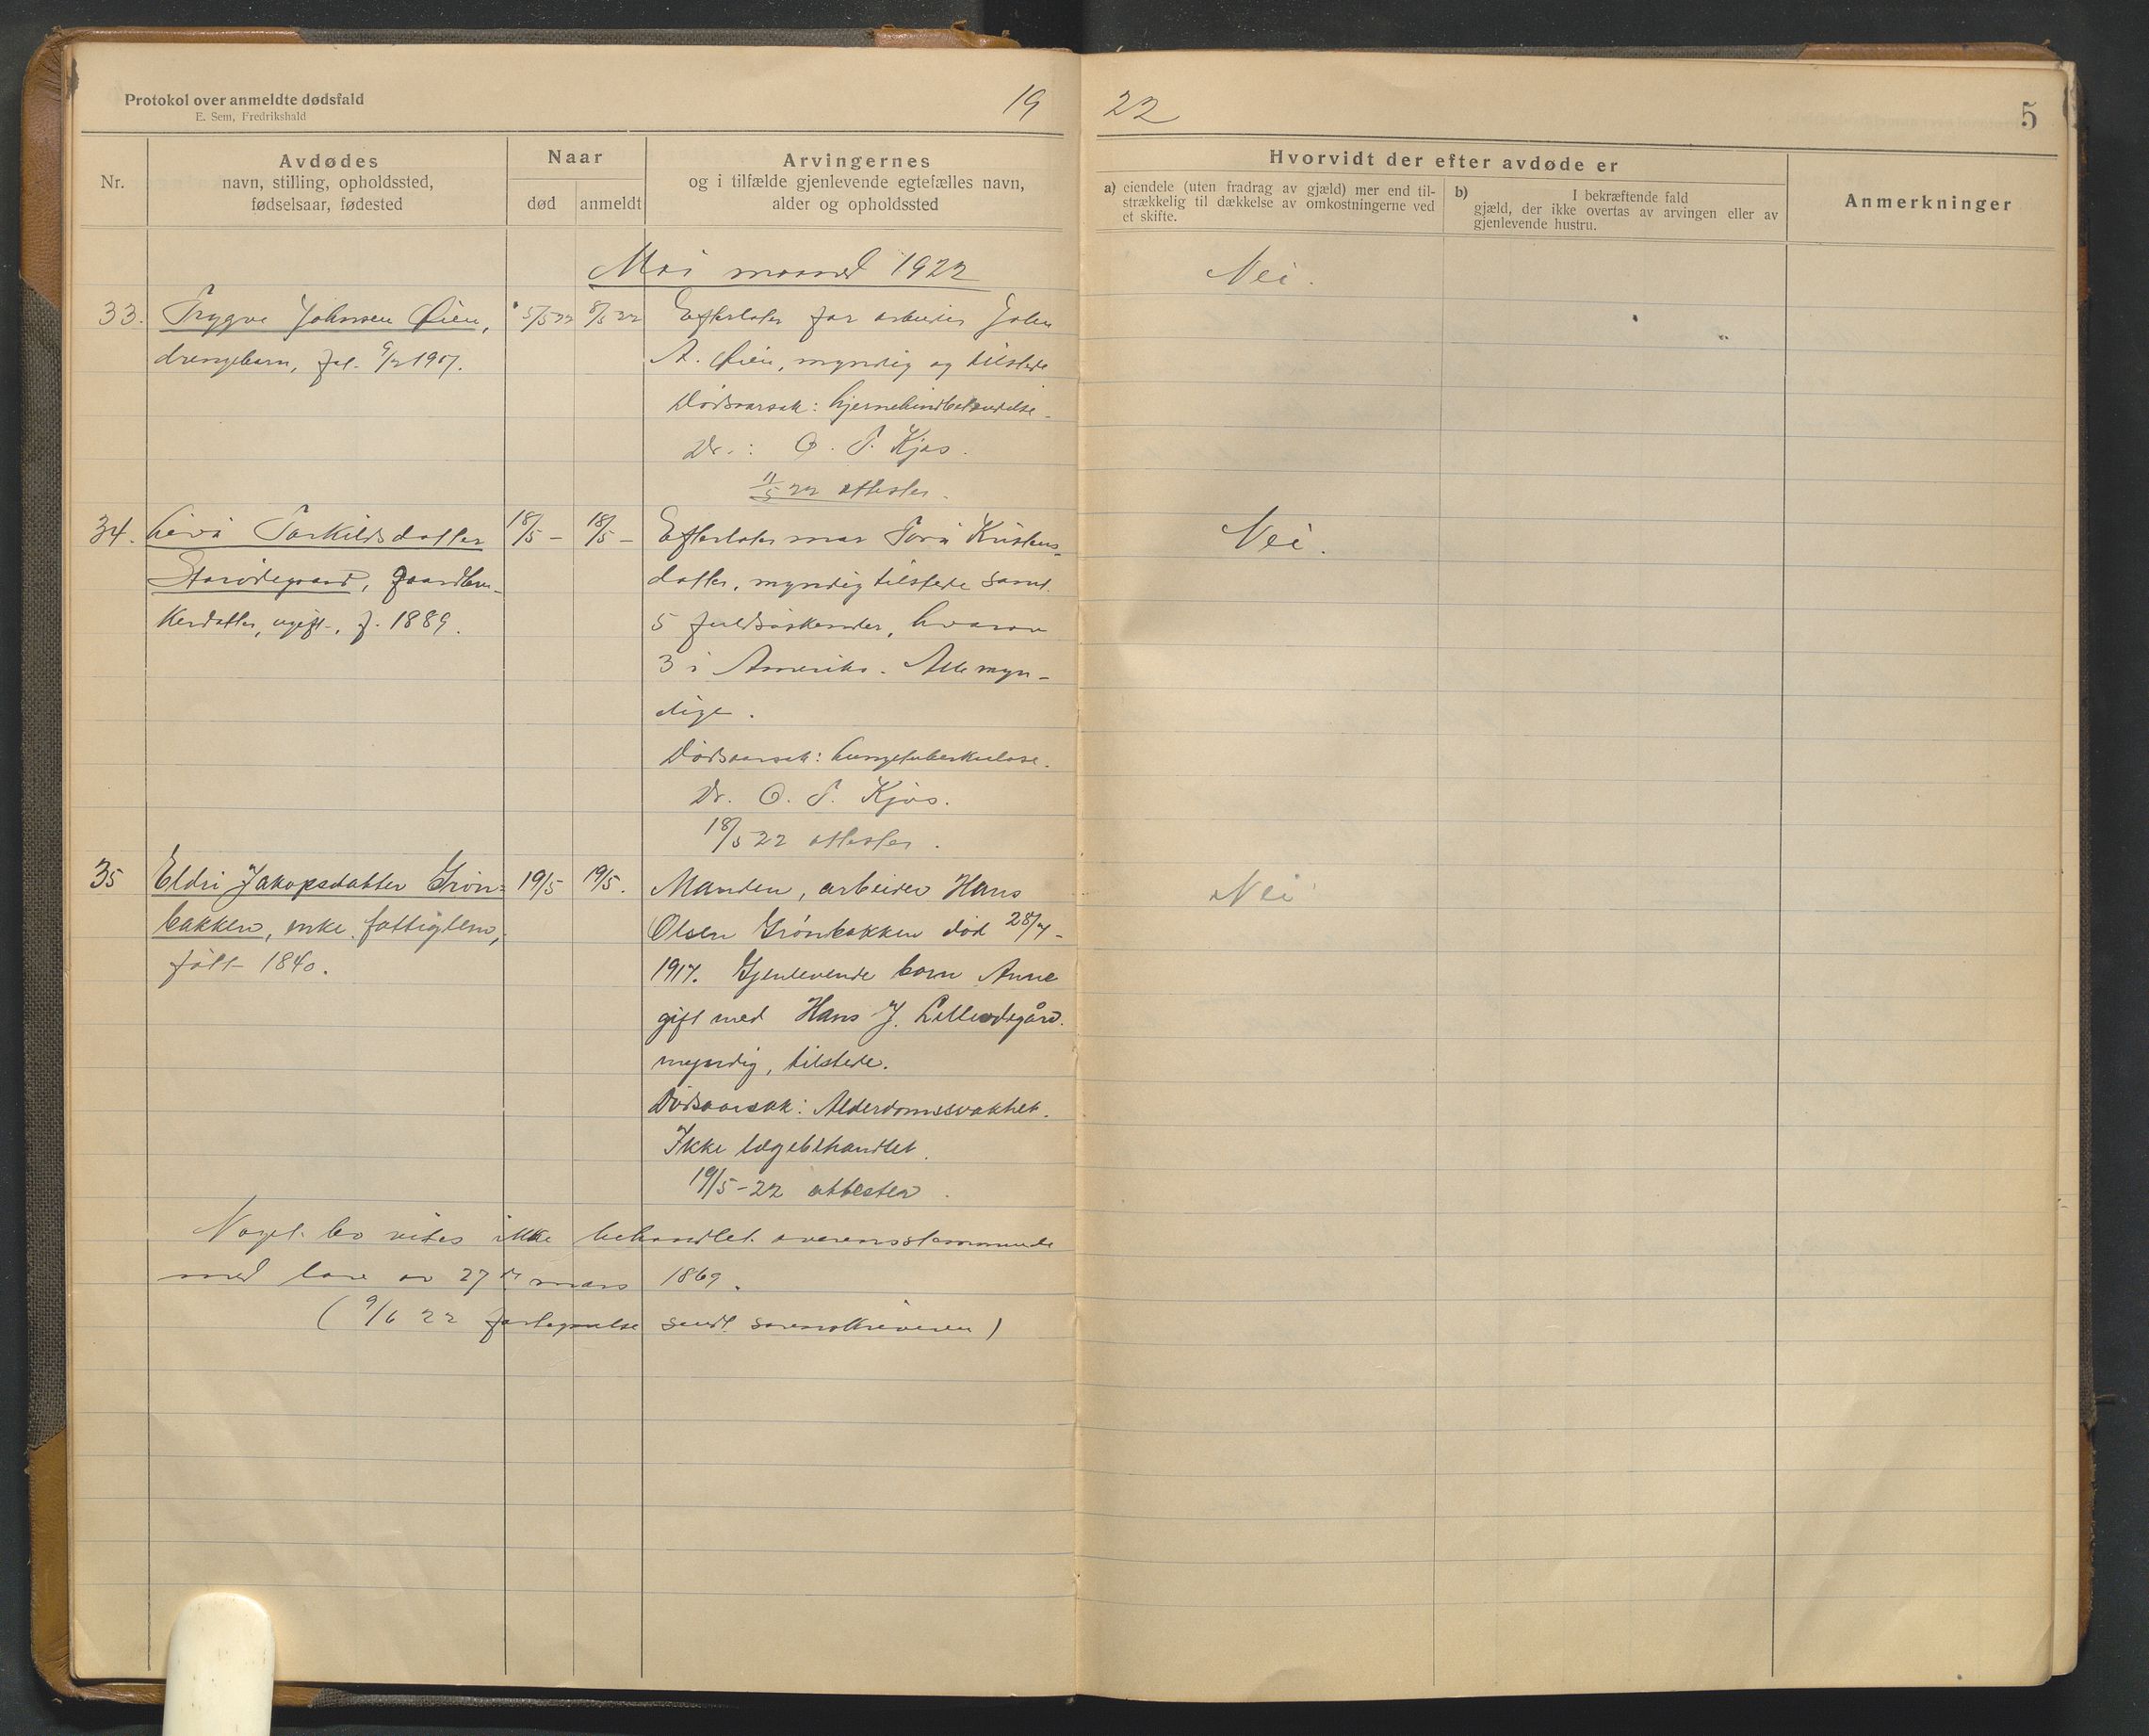 Protokol over anmeldte dødsfald
E. Sem, Fredrikshald
19
22
5
Nr.
Avdødes
navn, stilling, opholdssted,
fødselsaar, fødested
Naar
død
anmeldt
Arvingernes
og i tilfælde gjenlevende egtefælles navn,
alder og opholdssted
Hvorvidt der efter avdøde er
a) eiendele (uten fradrag av gjæld) mer end til-
strækkelig til dækkelse av omkostningerne ved
et skifte.
b) I bekræftende fald
gjæld, der ikke overtas av arvingen eller av
gjenlevende hustru.
Anmerkninger
Mai maaned 1922
33. Trygve Johnsen Øien, 5/5 22 8/5 22 Efterlater far arbeider John Nei.
drengebarn, fød. A. Øien, myndig og tilstede
Dødsaarsak: hjernehindbetændelse.
Dr.: O. T. Kjos.
11/5 22 attester.
34. Torkildsdatter 18/5 - 18/5 - Efterlater mor Kristens- Nei.
gaardbru-
datter, myndig tilstede samt
kerdatter, ugift, f. 1889. 5 fuldsøskender, hvorav
3 i Amerika. Alle myn-
dige.
Dødsaarsak: lungetuberkulose.
Dr. O. T. Kjos.
18/5 22 attester.
35 Eldri Jakopsdatter Grøn- 19/5 19/5. Manden, arbeider Hans Nei
bakken, enke, fattiglem, Olsen Grønbakken død
født 1840. 1917. Gjenlevende barn Anne
gift med Hans J.
myndig, tilstede.
Dødsaarsak: Alderdomssvakhet.
Ikke lægebehandlet.
19/5-22 attester.
Noget bo vites ikke behandlet overensstemmende
med lov av 27de mars 1869.
(9/6 22 fortegnelse sendt sorenskriveren)